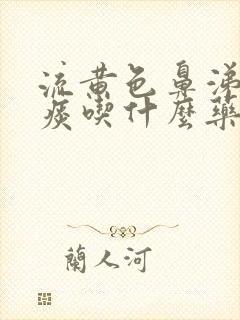 流黄色鼻涕
痰喫什麼藥
蘭人河